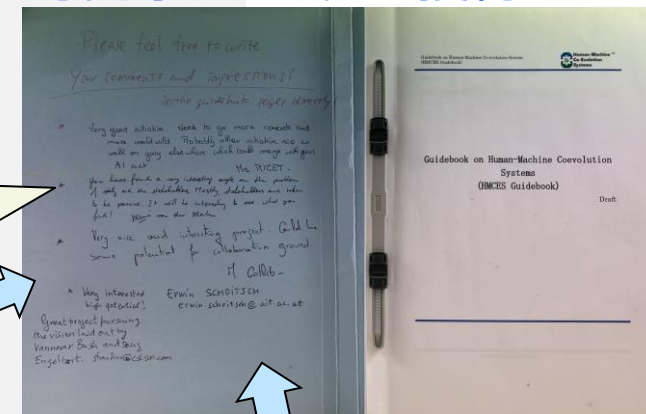 Please feel free to write
Your comments and impressions!
in the guidebook pages directly!
Very good initiative Need to go more concrete and
more Probably other initiative also as
well on going elsewhere which could merge with yours
AI act
Mrs RICET.
You have found a very interesting angle on the problem
of are the stakeholders Mostly stakeholders are taken
to be persons. It will be interesting to see what you
find! van der
Very nice and interesting project. Could be
some potential for collaboration ground.
M
Very interested
high potential!
Erwin SCHOITSCH
erwin.schoitsch@ait.ac.at
Great project pursuing
the vision laid out by
Vannevar Bush and Doug
Engelbart.
Guidebook on Human-Machine Co-evolution System
(HMCES Guidebook)
Human-Machine
Co Evolution
Systems
Guidebook on Human-Machine Coevolution
Systems
(HMCES Guidebook)
Draft